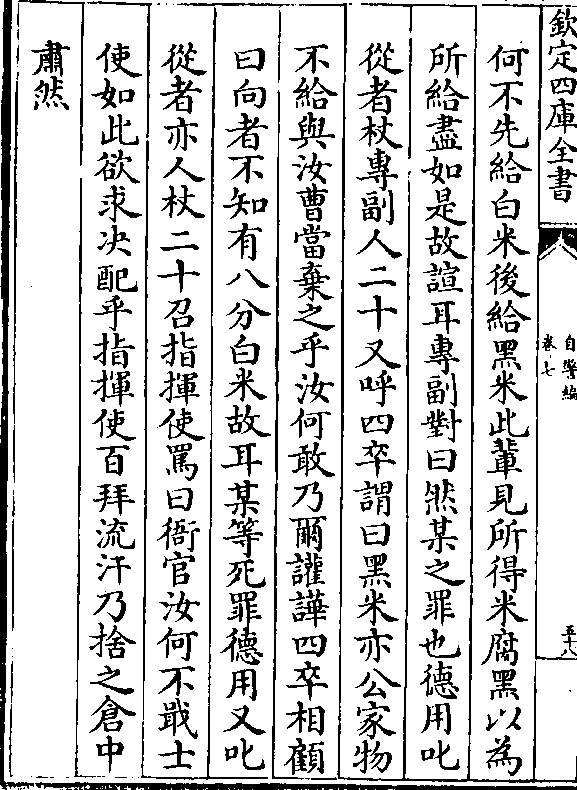 欽定四庫全書
自警編
卷七
五十八
何不先給白米後給黑米此輩見所得米腐黑以為
所給盡如是故諠耳專副對曰然某之罪也德用叱
從者杖專副人二十又呼四卒謂曰黑米亦公家物
不給與汝曹當棄之乎汝何敢乃爾讙譁四卒相顧
曰向者不知有八分白米故耳某等死罪德用又叱
從者亦人杖二十召指揮使罵曰衙官汝何不戢士
使如此欲求决配乎指揮使百拜流汗乃捨之倉中
肅然